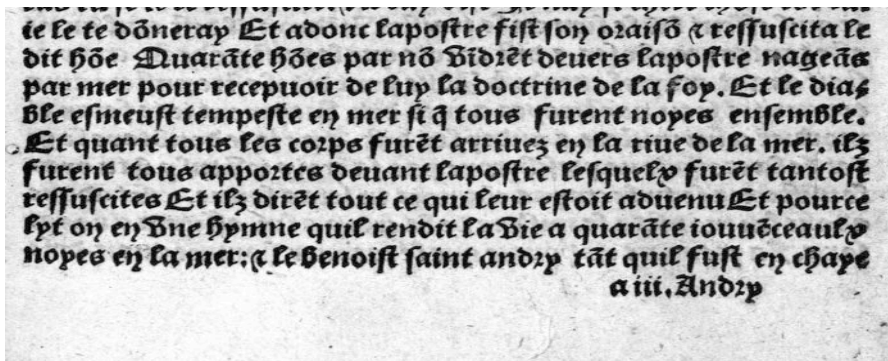 ie le te dõneray Et adonc lapostre fist son oraisõ ⁊ ressuscita le
dit hõe Quarãte hões par nõ vĩdrẽt devers lapostre nageãs
par mer pour recepuoir de luy la doctrine de la foy. Et le dia⸗
ble esmeust tempeste en mer si q̃ tous furent noyes ensemble.
Et quant tous les corps furẽt arriuez en la riue de la mer. ilz
furent tous apportes deuant lapostre lesquelx furẽt tantost
ressuscites Et ilz dirẽt tout ce qui leur estoit aduenu Et pource
lyt on en vne hymne quil rendit la vie a quarãte iouuẽceaulx
noyes en la mer: ⁊ le benoist saint andry tãt quil fust en chaye
a iii. Andry